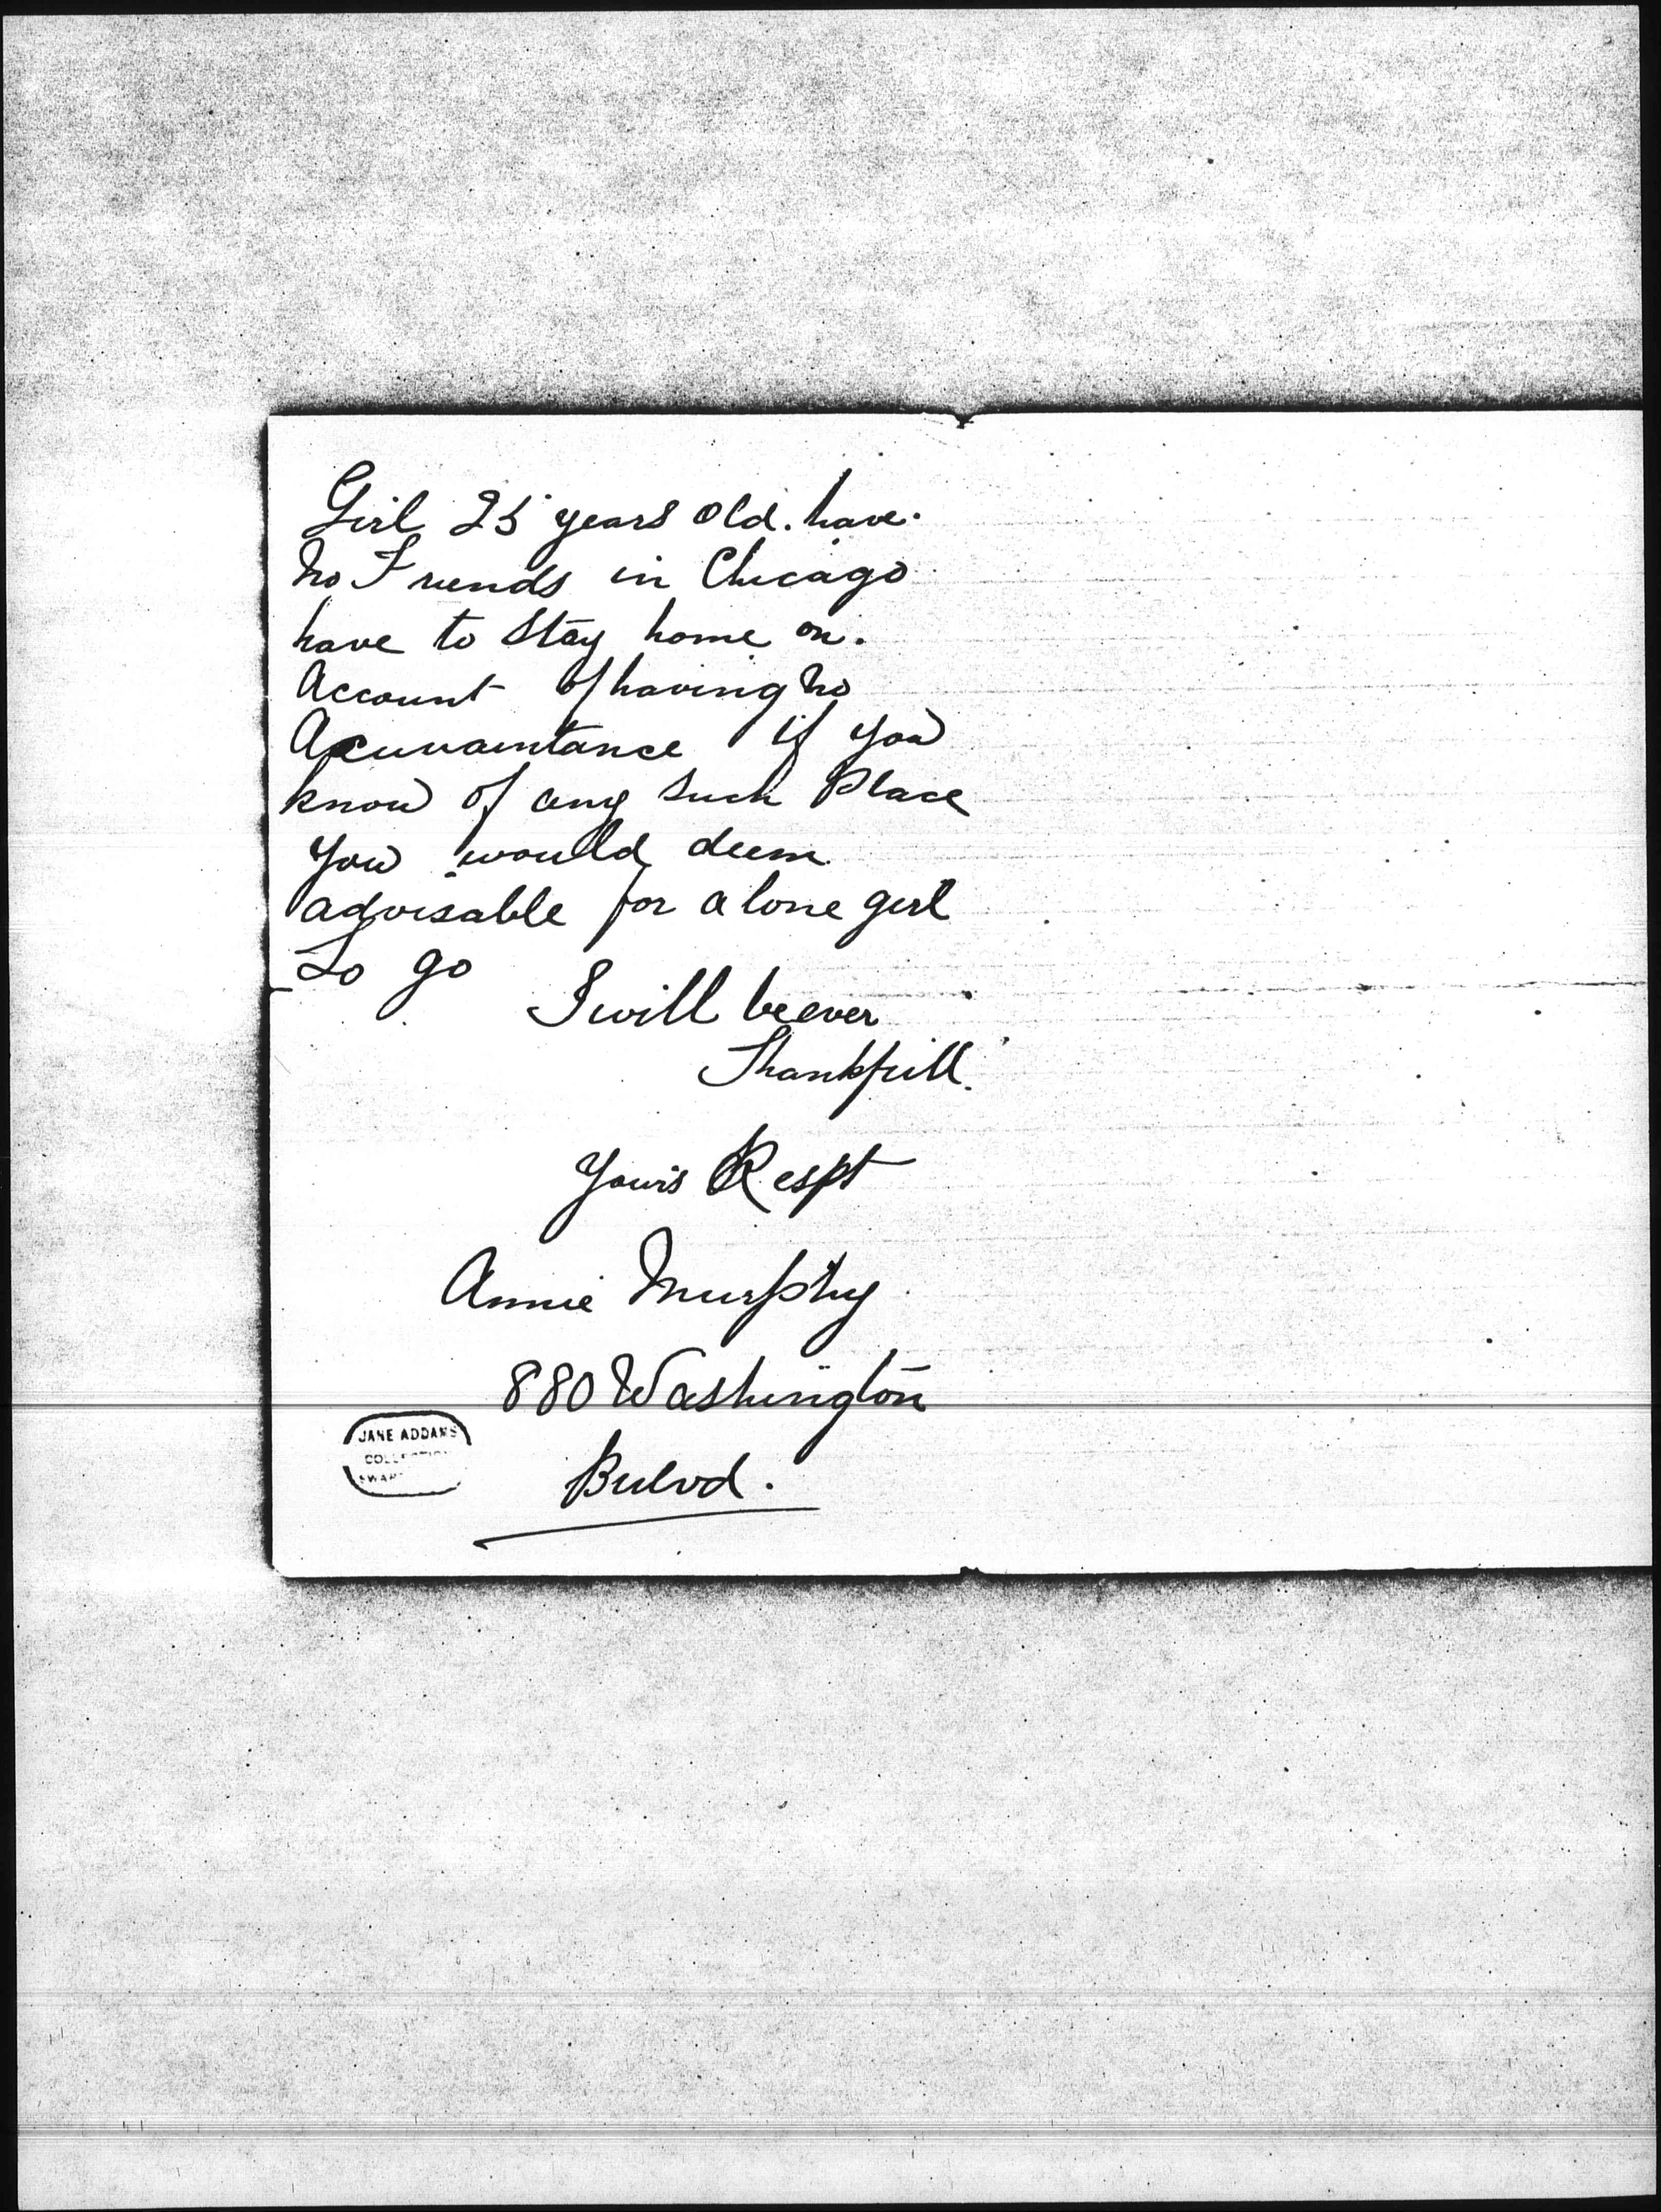 Girl 25 years old. have.
no Friends in Chicago
have to Stay home on.
Account of having no
Acuuaintance if you
know of any Such Place
you would deem
advisable for a lone girl
To go
I will be ever
Thankfull.
Yours Respt
Annie Murphy
880 Washington
Bulvd.
JANE ADDAMS